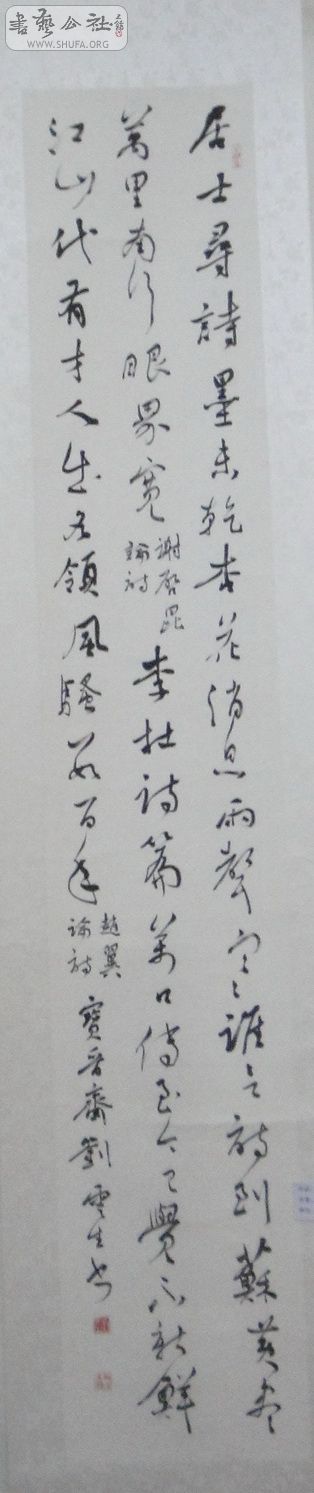 書藝公社
WWW.SHUFA.ORG
居士尋詩墨未乾杏花消息雨聲寒誰言詩到蘇黃盡
萬里南行眼界寬謝啓昆論詩李杜詩篇萬口傳至今已覺不新鮮
江山代有才人出各領風騷數百年趙翼論詩寶晉齋劉雲生书